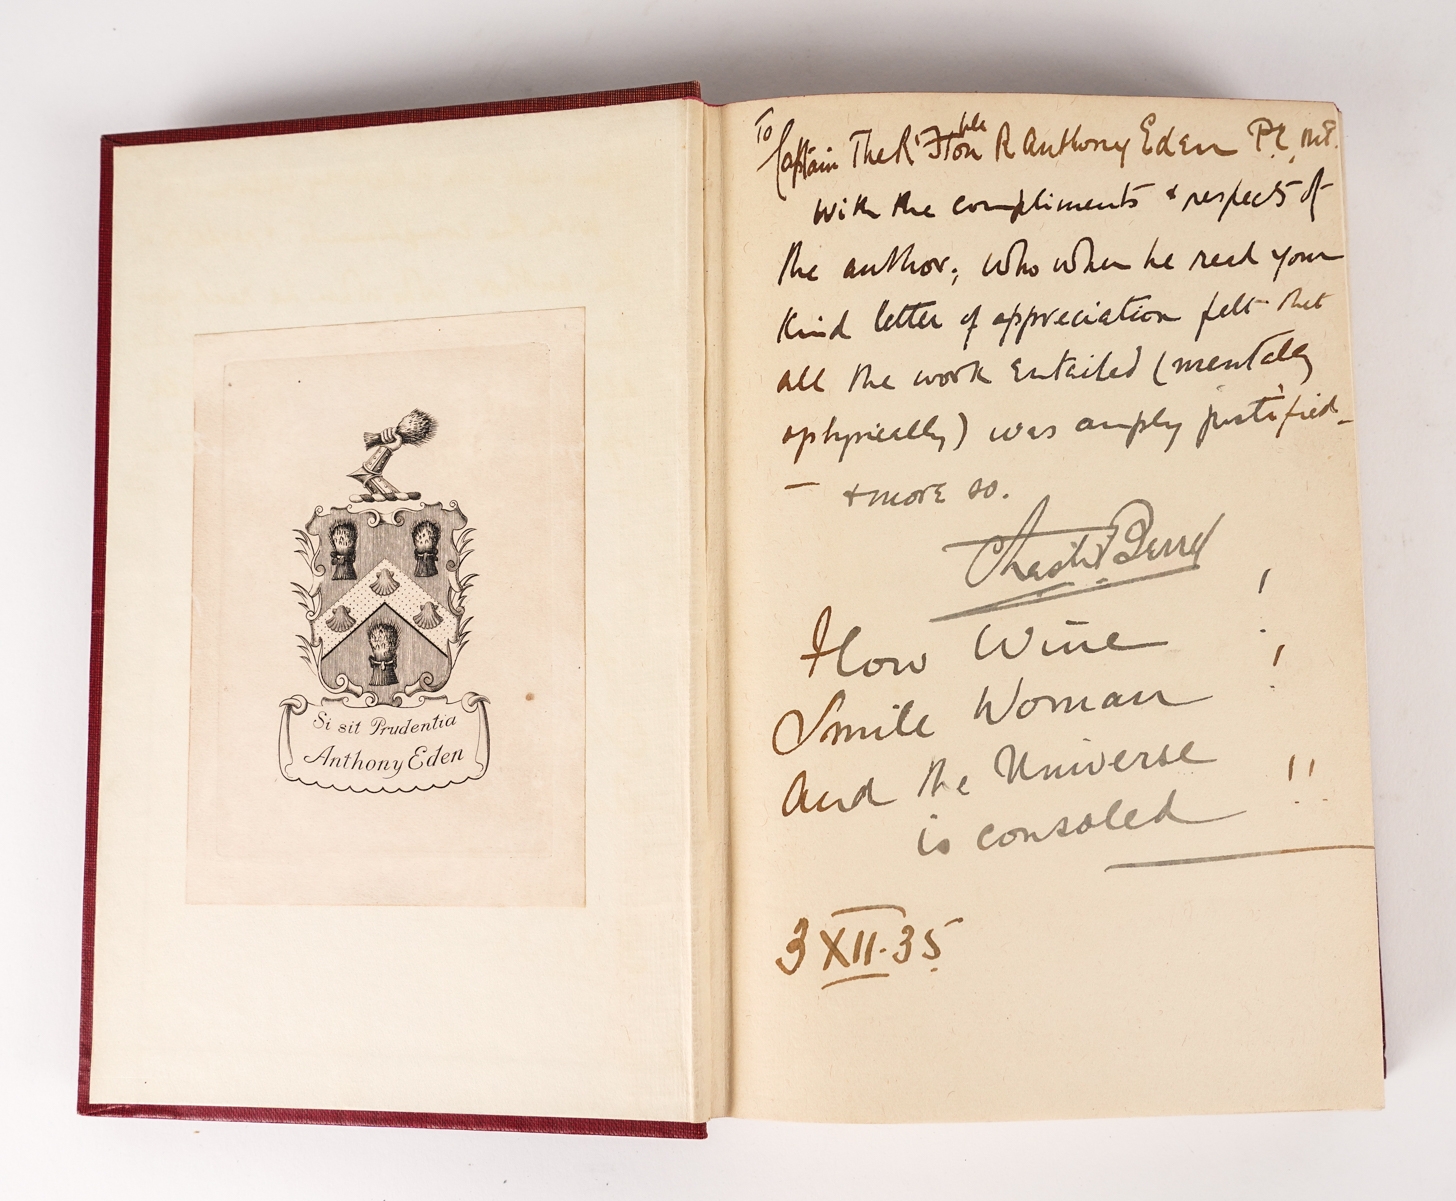 Si sit Prudentia
Anthony Eden
To Captain The Rt Honble R Anthony Eden P.C, M.P.
with the compliments & respects of
the author, who when he read your
kind letter of appreciation felt that
all the work entailed (mentally
& physically) was amply justified –
– & more so.
Berry
Flow Wine !
Smile Woman !
And the Universe
is consoled !!
3 XII. 35